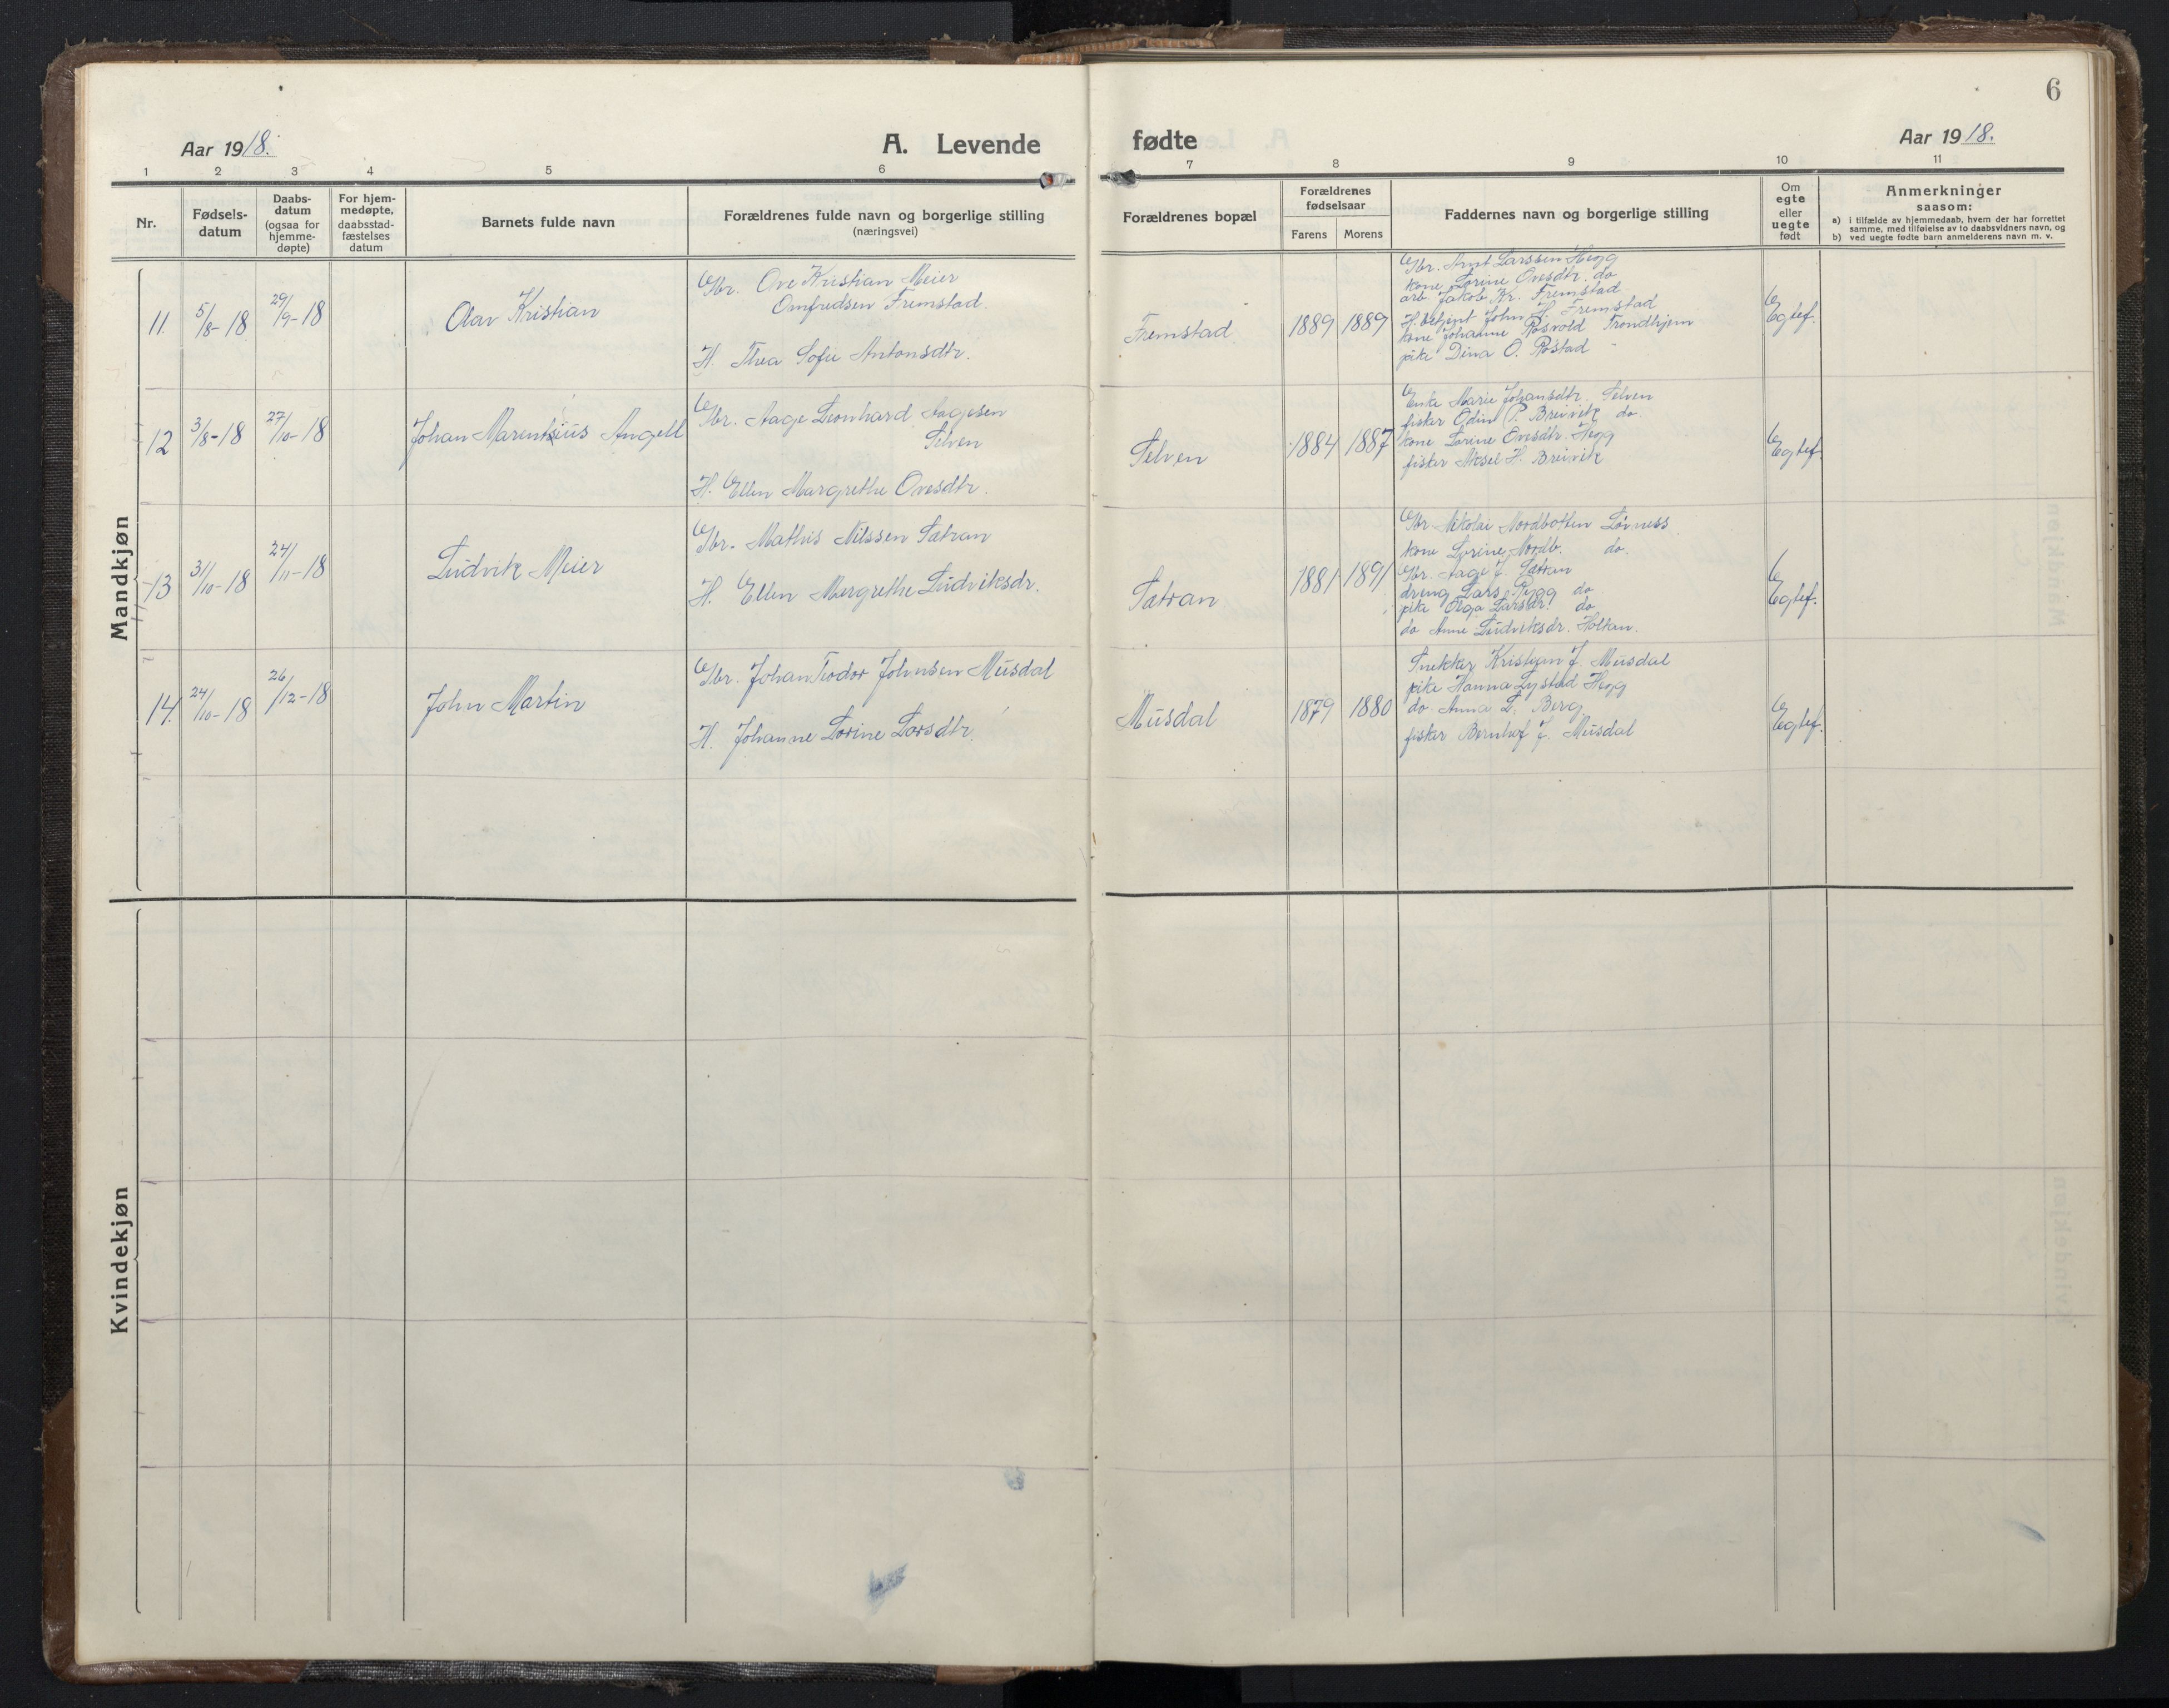 6
Aar 1918.
A. Levende
fødte
Aar 1918.
1 2 3 4 5 6 7 8 9 10 11
Nr.
Fødsels-
datum
Daabs-
datum
(ogsaa for
hjemme-
døpte)
For hjem-
medøpte,
daabsstad-
fæstelses
datum
Barnets fulde navn
Forældrenes fulde navn og borgerlige stilling
(næringsvei)
Forældrenes bopæl
Forældrenes
fødselsaar
Farens Morens
Faddernes navn og borgerlige stilling
Om
egte
eller
uegte
født
Anmerkninger
saasom:
a) i tilfælde av hjemmedaab, hvem der har forrettet
samme, med tilføielse av to daabsvidners navn, og
b) ved uegte fødte barn anmelderens navn m. v.
Mandkjøn
11. 5/8-18 29/9-18
Olav Kristian
Gbr. Ove Kristian Meier
Omfredsen Fremstad.
H. Thea Sofie Antonsdtr.
Fremstad 1889 1889
Gbr. Arnt Larssen Hegg
kone Lorine Ovesdtr. do
arb. Jakob Kr. Fremstad
H.betjent John H. Fremstad
kone Johanne Rosvold Trondhjem
pike Dina O. Rostad
Egtef.
12 3/8-18 27/10-18
Johan Marentsius Angell
Gbr. Aage Leonhard Aagesen
Selven
H. Ellen Margrethe Ovesdtr.
Selven 1884 1887
Enke Marie Johansdtr. Selven
fisker Odin P. Breivik do.
kone Lorine Ovesdtr. Hegg
fisker Aksel H. Breivik
Egtef.
13 3/10-18 24/11-18
Ludvik Meier
Gbr. Mathis Nilssen Satran
H. Ellen Margrethe Ludviksdr.
Satran 1881 1891
Gbr Nikolai Nordbotten
kone Lorine Nordb. do.
Gbr. Aage J. Satran
dreng Lars Rygg do
pike Olga Larsdr. do
do Anne Ludviksdr. Holkan.
Egtef.
14. 24/10-18 26/12-18
John Martin
Gbr. Johan Teodor Johnsen Musdal
H. Johanne Lorine Larsdtr.
Musdal 1879 1880
Snekker Kristian J. Musdal
pike Hanna Lystad Hegg
do. Anna L. Berg
fisker Bernhof J. Musdal
Egtef.
Kvindekjøn